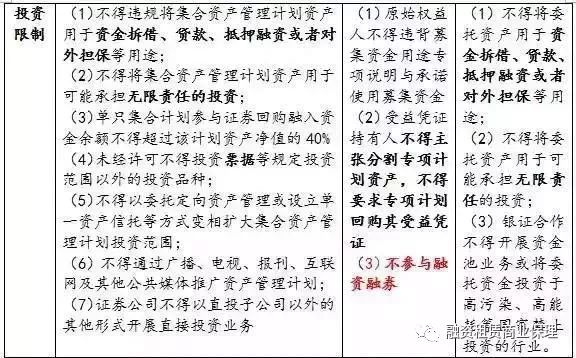 投资
限制
（1）不得违规将集合资产管理计划资产
用于资金拆借、贷款、抵押融资或者对
外担保等用途；
（2）不得将集合资产管理计划资产用于
可能承担无限责任的投资；
（3）单只集合计划参与证券回购融入资
金余额不得超过该计划资产净值的 40%
（4）未经许可不得投资票据等规定投资
范围以外的投资品种；
（5）不得以委托定向资产管理或设立单
一资产信托等方式变相扩大集合资产管
理计划投资范围；
（6）不得通过广播、电视、报刊、互联
网及其他公共媒体推广资产管理计划；
（7）证券公司不得以直投子公司以外的
其他形式开展直接投资业务
（1）原始权益
人不得违背募
集资金用途专
项说明与承诺
使用募集资金
（2）受益凭证
持有人不得主
张分割专项计
划资产，不得
要求专项计划
回购其受益凭
证
（3）不参与融
资融券
（1）不得将委
托资产用于资
金拆借、贷款、
抵押融资或者
对外担保等用
途；
（2）不得将委
托资产用于可
能承担无限责
任的投资；
（3）银证合作
不得开展资金
池业务或将委
托资金投资于
高污染、高能
投资的行业。
融资租赁商业保理